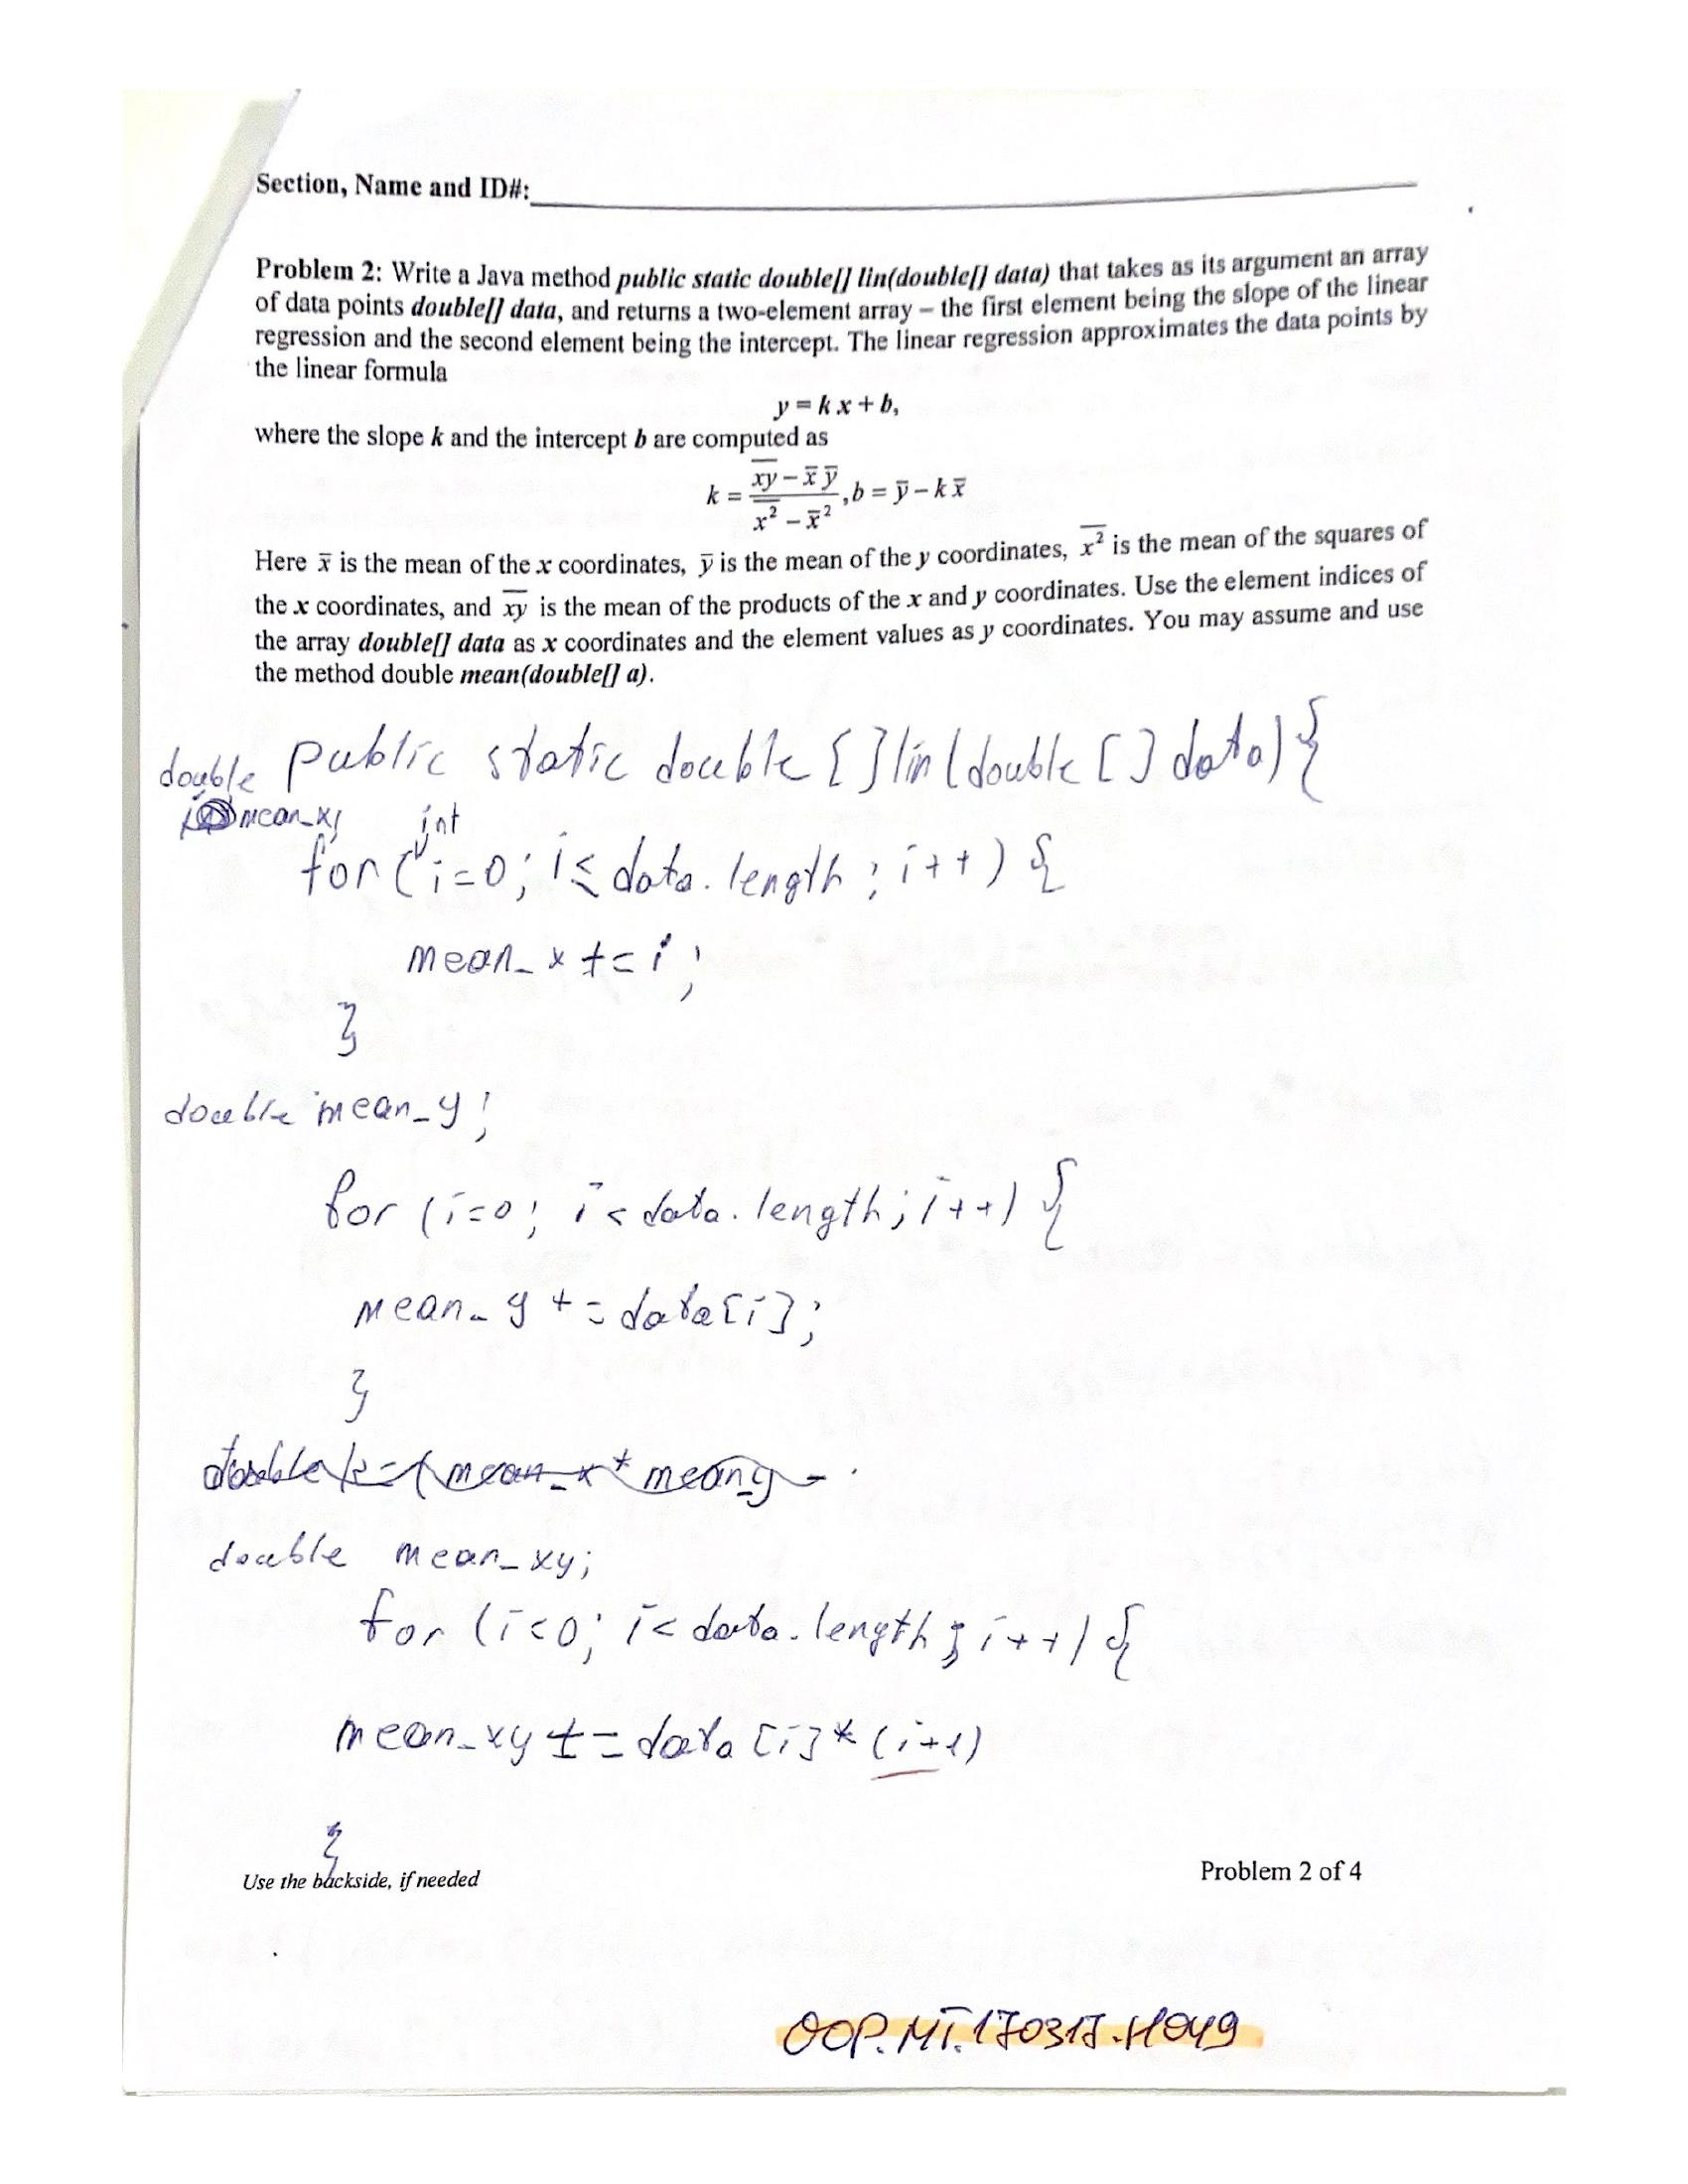 Section, Name and ID#:
Problem 2: Write a Java method public static double[] lin(double[] data) that takes as its argument an array
of data points double[] data, and returns a two-element array – the first element being the slope of the linear
regression and the second element being the intercept. The linear regression approximates the data points by
the linear formula
y = k x + b,
where the slope k and the intercept b are computed as
k = (x̅y̅ – x̅ y̅) / (x̅²̅ – x̅²), b = y̅ – k x̅
Here x̅ is the mean of the x coordinates, y̅ is the mean of the y coordinates, x̅²̅ is the mean of the squares of
the x coordinates, and x̅y̅ is the mean of the products of the x and y coordinates. Use the element indices of
the array double[] data as x coordinates and the element values as y coordinates. You may assume and use
the method double mean(double[] a).
public static double []lin(double [] data){
double
mean_x;
for (int i=0; i≤ data.length; i++) {
mean_x += i;
}
double mean_y;
for (i=0; i< data.length; i++) {
mean_y += data[i];
}
double k = (mean_x * mean_y -
double mean_xy;
for (i=0; i< data.length; i++) {
mean_xy += data[i]*(i+1)
}
Use the backside, if needed
Problem 2 of 4
OOP.MT.170317.H049